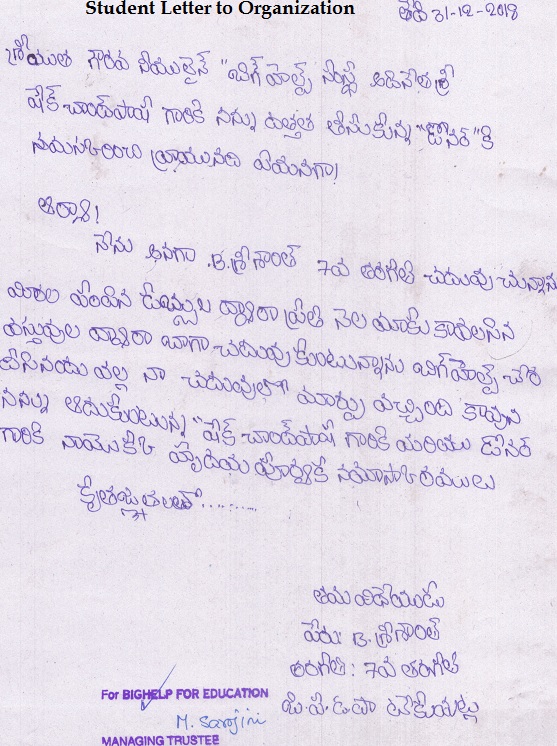 Student Letter to Organization
తేది 31-12-2018
శ్రీయుత గౌరవ నీయులైన "బిగ్ హెల్ప్ సంస్థ అదినేత శ్రీ
షేక్ చాంద్ పాషా గారికి నన్ను దత్తత తీసుకున్న "డోనర్" కి
నమస్కరించి వ్రాయునది ఏమనగా!
ఆర్యా!
నేను అనగా B.శ్రీశాంత్ 7వ తరగతి చదువు చున్నాను
మీరు పంపిన డబ్బుల ద్వారా ప్రతి నెల మాకు కావలసిన
వస్తువుల ద్వారా బాగా చదువు కుంటున్నాను బిగ్ హెల్ప్ చేర
దీసినందు వల్ల నా చదువులో మార్పు వచ్చింది కావున
నన్ను ఆదుకుంటున్న "షేక్ చాంద్ పాషా గారికి మరియు డోనర్
గారికి నాయొక్క హృదయ పూర్వక నమస్కారములు
కృతజ్ఞతలతో..........
తమ విదేయుడు
పేరు: B.శ్రీశాంత్
తరగతి: 7వ తరగతి
For BIGHELP FOR EDUCATION
M. Sarojini
MANAGING TRUSTEE